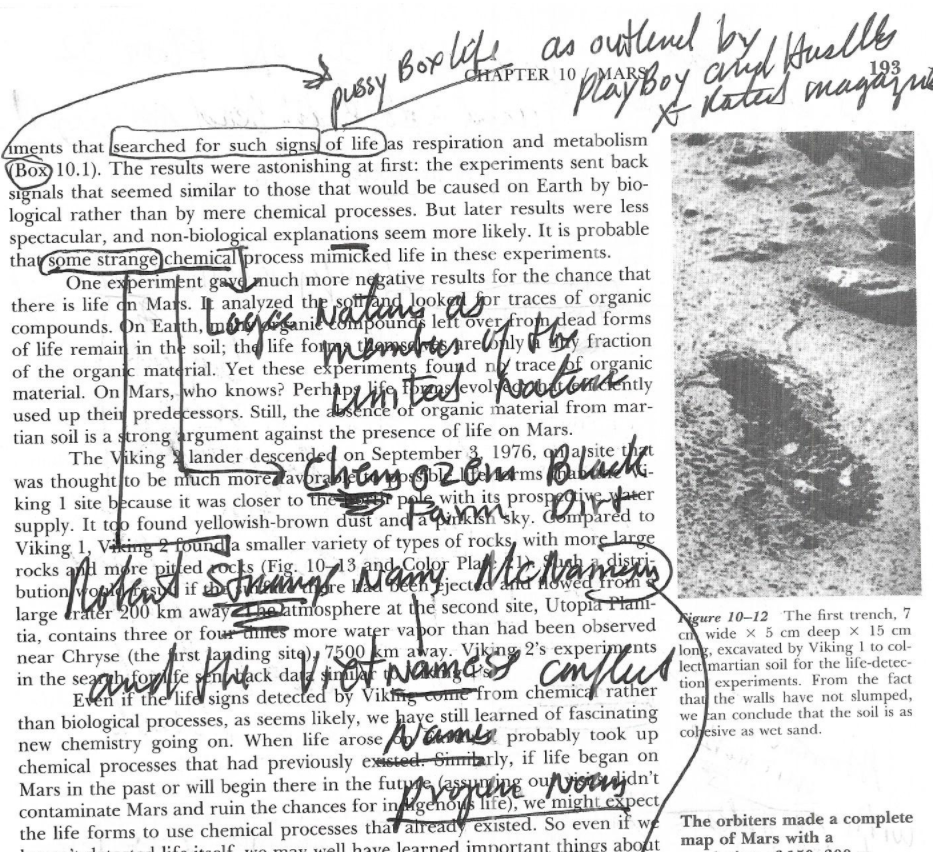 pussy Box life as outlend by
CHAPTER 10 / MARS 193
PlayBoy and Hustler
X Rated magazine
iments that searched for such signs of life as respiration and metabolism
(Box 10.1). The results were astonishing at first: the experiments sent back
signals that seemed similar to those that would be caused on Earth by bio-
logical rather than by mere chemical processes. But later results were less
spectacular, and non-biological explanations seem more likely. It is probable
that some strange chemical process mimicked life in these experiments.
One experiment gave much more negative results for the chance that
there is life on Mars. It analyzed the soil and looked for traces of organic
compounds. On Earth, many organic compounds left over from dead forms
Logic Nations as
of life remain in the soil; the life forms themselves are only a tiny fraction
members of the
of the organic material. Yet these experiments found no trace of organic
material. On Mars, who knows? Perhaps life forms evolved that efficiently
United Nations
used up their predecessors. Still, the absence of organic material from mar-
tian soil is a strong argument against the presence of life on Mars.
The Viking 2 lander descended on September 3, 1976, on a site that
was thought to be much more favorable to possible life forms than the Vi-
Chernozem Black
king 1 site because it was closer to the north pole with its prospective water
Farm Dirt
supply. It too found yellowish-brown dust and a pinkish sky. Compared to
Viking 1, Viking 2 found a smaller variety of types of rocks, with more large
rocks and more pitted rocks (Fig. 10–13 and Color Plate 21). Such a distri-
Robert Strange Name McNamara
bution would result if the
had been ejected and flowed from a
large crater 200 km away. The atmosphere at the second site, Utopia Plani-
tia, contains three or four times more water vapor than had been observed
near Chryse (the first landing site), 7500 km away. Viking 2's experiments
and the Vietnamese conflict
in the search for life sent back data similar to Viking 1's.
Even if the life signs detected by Viking come from chemical rather
than biological processes, as seems likely, we have still learned of fascinating
new chemistry going on. When life arose on Earth, it probably took up
Names
chemical processes that had previously existed. Similarly, if life began on
Mars in the past or will begin there in the future (assuming our visits didn't
proper Noun
contaminate Mars and ruin the chances for indigenous life), we might expect
the life forms to use chemical processes that already existed. So even if we
haven't detected life itself, we may well have learned important things about
Figure 10–12 The first trench, 7
cm wide × 5 cm deep × 15 cm
long, excavated by Viking 1 to col-
lect martian soil for the life-detec-
tion experiments. From the fact
that the walls have not slumped,
we can conclude that the soil is as
cohesive as wet sand.
The orbiters made a complete
map of Mars with a